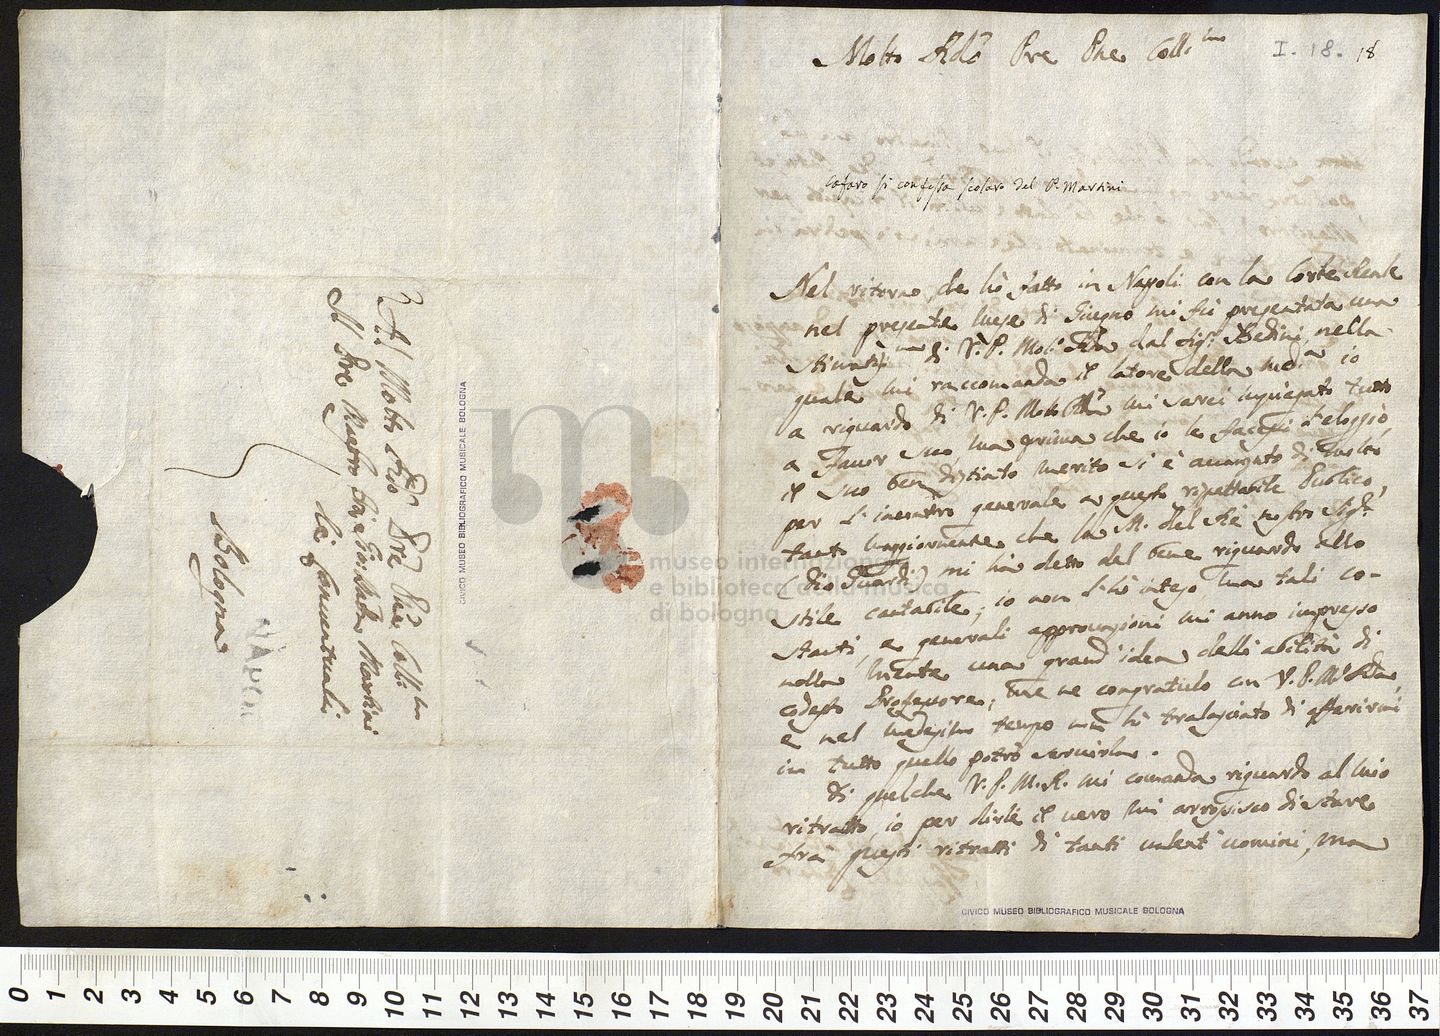 Al Molto Rdo Pre Pne Coll.mo
Il Pre Maestro Fra Gio: Batta Martini
de' Conventuali
Bologna
NAPOLI
CIVICO MUSEO BIBLIOGRAFICO MUSICALE BOLOGNA
museo internazionale
e biblioteca della musica
di bologna
Molto Rdo Pre Pne Coll.mo
I. 18. 18
Cafaro si confessa scolaro del P. Martini
Nel ritorno che hò fatto in Napoli con la Corte Reale
nel presente mese di Giugno mi fù presentata una
stimatis.ma di V. P. Mol. Rda dal Sig.r Bedini, nella
quale mi raccomanda il latore della med.a io
a riguardo di V. P. Molto Rda mi sarei impiegato tutto
a favor suo, ma prima che io le facessi l'eloggio,
il suo ben distinto merito si è avanzato di molto
per l'incontro generale a questo rispettabile Publico,
tanto maggiormente che la M. del Rè nostro Sig.r
(Dio Guardi) mi ha detto del bene riguardo allo
stile cantabile; io non l'hò inteso, ma tali co-
stanti, e generali approvazioni mi anno impresso
nella mente una grand'idea dell'abilità di
codesto Professore; me ne congratulo con V. P. M. Rda,
e nel medesimo tempo non hò tralasciato di offerirmi
in tutto quello potrò servirla.
Di quel che V. P. M. R. mi comanda riguardo al mio
ritratto, io per dirle il vero mi arrossisco di stare
frà questi ritratti di tanti valent'uomini, ma
CIVICO MUSEO BIBLIOGRAFICO MUSICALE BOLOGNA
0 1 2 3 4 5 6 7 8 9 10 11 12 13 14 15 16 17 18 19 20 21 22 23 24 25 26 27 28 29 30 31 32 33 34 35 36 37